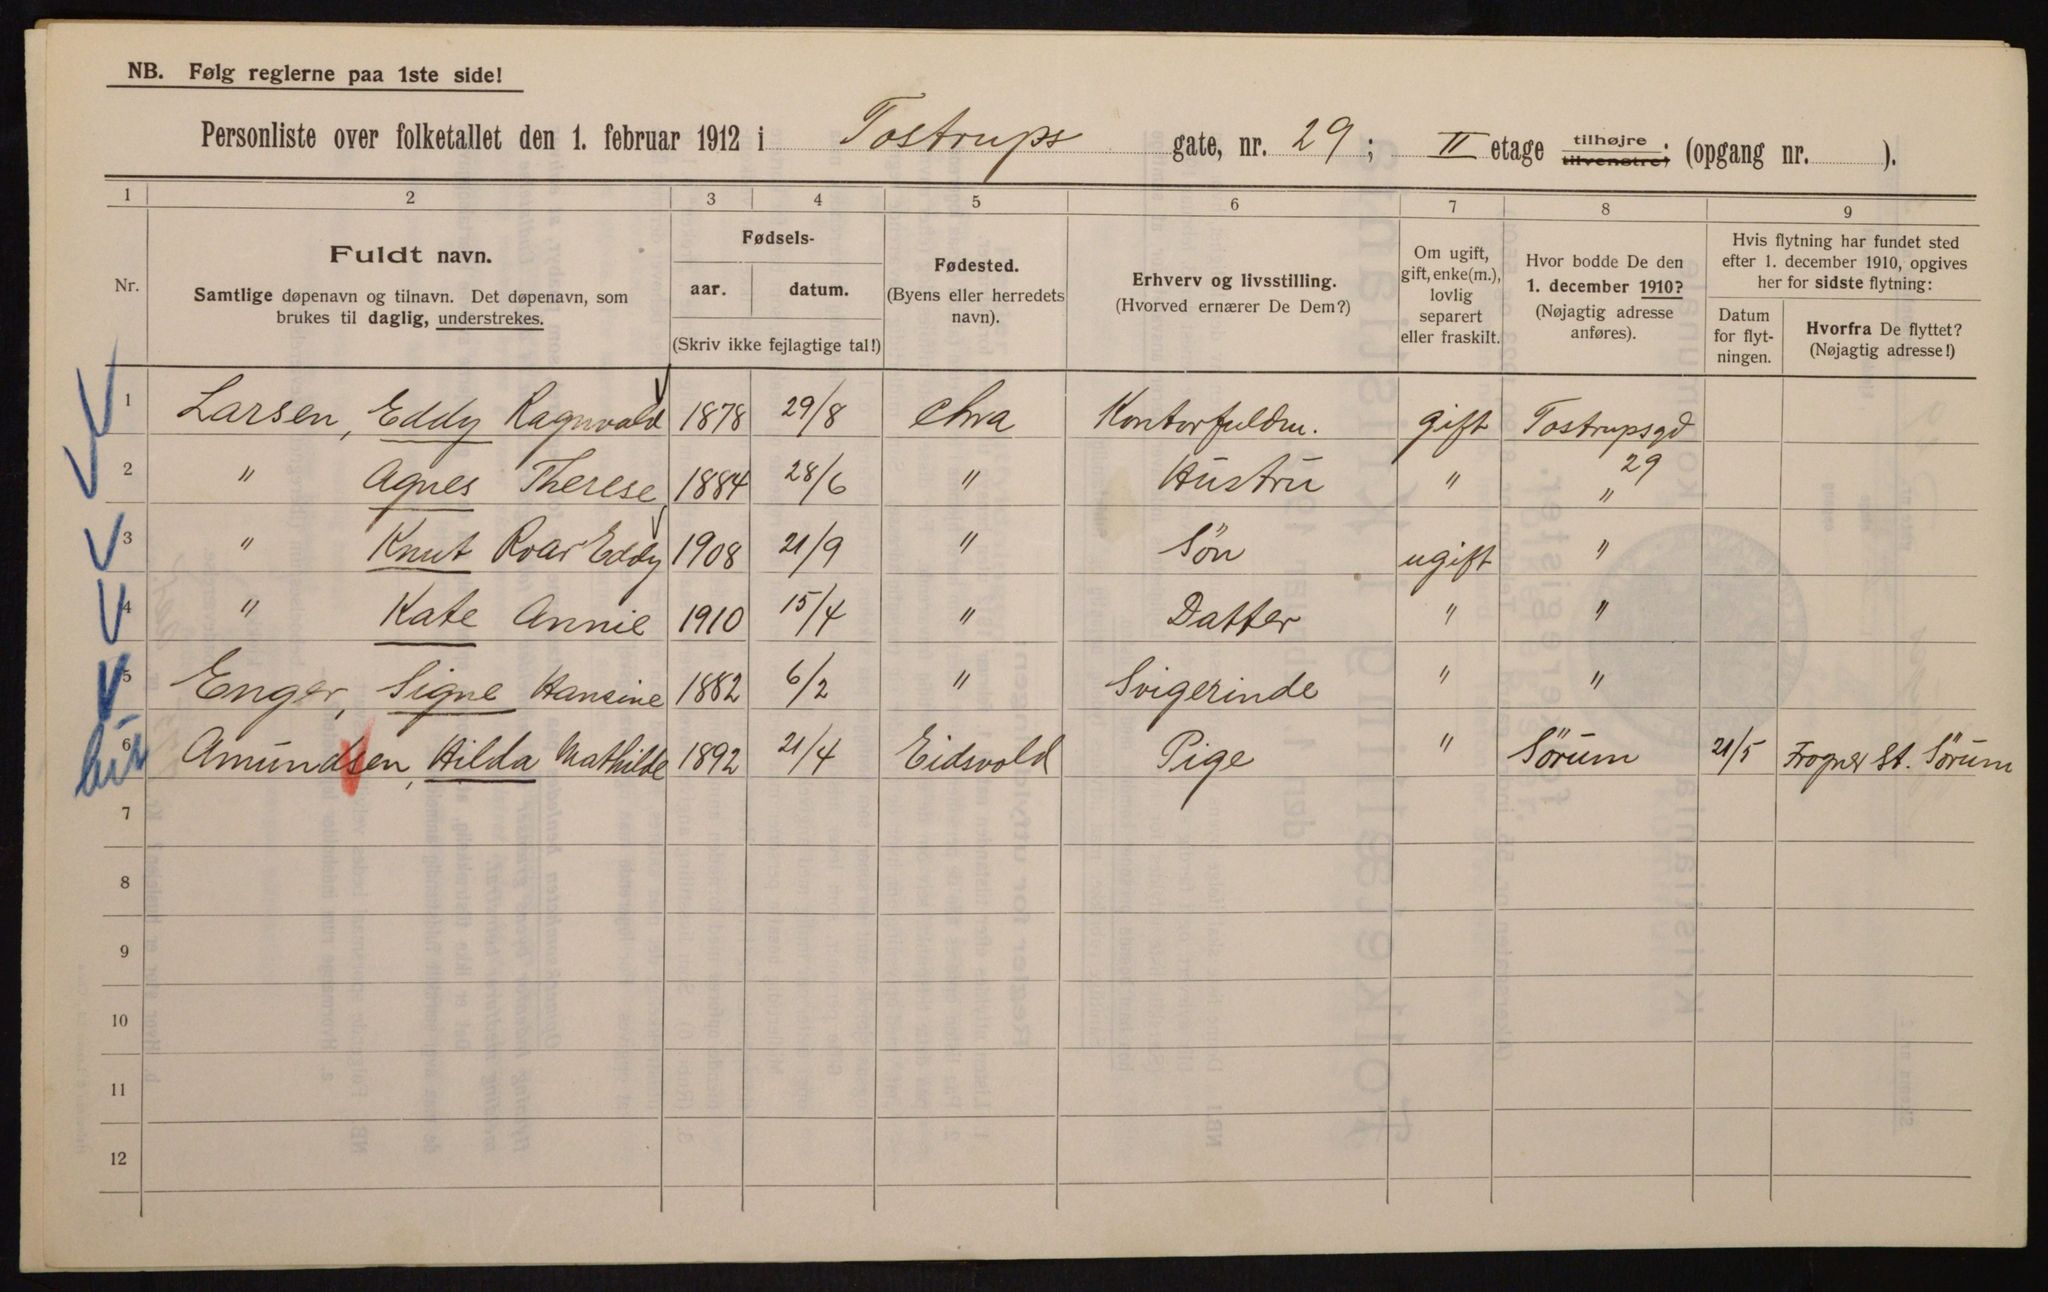 NB. Følg reglerne paa 1ste side!
Personliste over folketallet den 1. februar 1912 i Tostrups gate, nr. 29; II etage tilhøjre. tilvenstre, (opgang nr. ).
1 2 3 4 5 6 7 8 9
Nr.
Fuldt navn.
Samtlige døpenavn og tilnavn. Det døpenavn, som
brukes til daglig, understrekes.
Fødsels-
aar. datum.
(Skriv ikke fejlagtige tal!)
Fødested.
(Byens eller herredets
navn).
Erhverv og livsstilling.
(Hvorved ernærer De Dem?)
Om ugift,
gift, enke(m.),
lovlig
separert
eller fraskilt.
Hvor bodde De den
1. december 1910?
(Nøjagtig adresse
anføres).
Hvis flytning har fundet sted
efter 1. december 1910, opgives
her for sidste flytning:
Datum
for flyt-
ningen.
Hvorfra De flyttet?
(Nøjagtig adresse!)
1 Larsen, Eddy Ragnvald 1878 29/8 Chra Kontorfuldm. gift Tostrupsgd
29
2 " Agnes Therese 1884 28/6 " Hustru " "
3 " Knut Roar Eddy 1908 21/9 " Søn ugift "
4 " Kate Annie 1910 15/4 " Datter " "
5 Enger, Signe Hansine 1882 6/2 " Svigerinde " "
6 Amundsen, Hilda Mathilde 1892 21/4 Eidsvold Pige " Sörum 21/5 Frogner St. Sörum
7
8
9
10
11
12